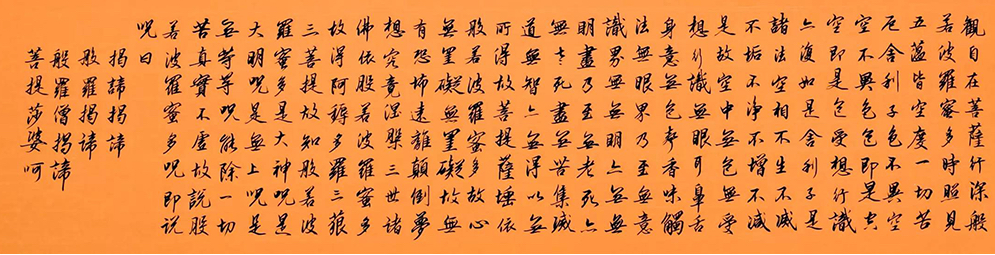 觀自在菩薩行深般
若波羅蜜多時照見
五蘊皆空度一切苦
厄舍利子色不異空
空不異色色即是空
空即是色受想行識
亦復如是舍利子是
諸法空相不生不滅
不垢不淨不增不減
是故空中無色無受
想行識無眼耳鼻舌
身意無色聲香味觸
法無眼界乃至無意
識界無無明亦無無
明盡乃至無老死亦
無老死盡無苦集滅
道無智亦無得以無
所得故菩提薩埵依
般若波羅蜜多故心
無罣礙無罣礙故無
有恐怖遠離顛倒夢
想究竟涅槃三世諸
佛依般若波羅蜜多
故得阿耨多羅三藐
三菩提故知般若波
羅蜜多是大神呪是
大明呪是無上呪是
無等等呪能除一切
苦真實不虛故說般
若波羅蜜多呪即说
呪曰
揭諦揭諦
般羅揭諦
般羅僧揭諦
菩提莎婆呵